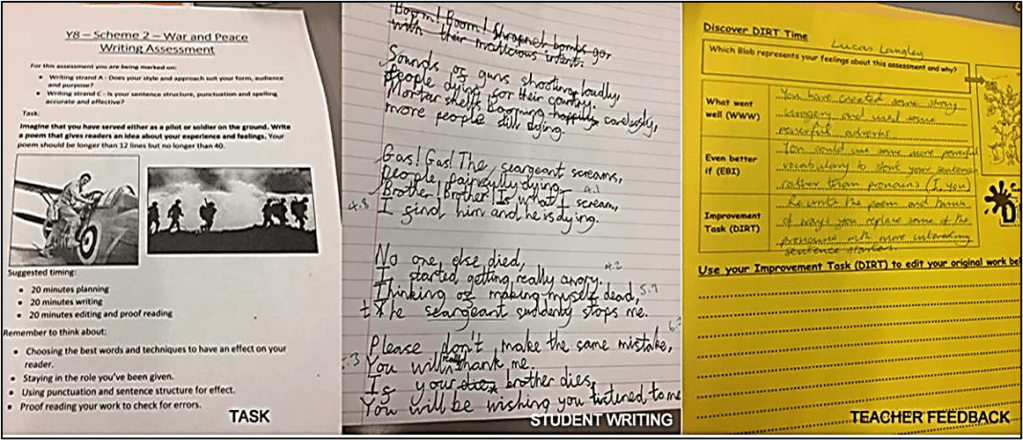 Y8 – Scheme 2 – War and Peace
Writing Assessment
For this assessment you are being marked on:
• Writing strand A - Does your style and approach suit your form, audience
and purpose?
• Writing strand C - Is your sentence structure, punctuation and spelling
accurate and effective?
Task:
Imagine that you have served either as a pilot or soldier on the ground. Write
a poem that gives readers an idea about your experience and feelings. Your
poem should be longer than 12 lines but no longer than 40.
Suggested timing:
• 20 minutes planning
• 20 minutes writing
• 20 minutes editing and proof reading
Remember to think about:
• Choosing the best words and techniques to have an effect on your
reader.
• Staying in the role you've been given.
• Using punctuation and sentence structure for effect.
• Proof reading your work to check for errors.
TASK
Boom! Boom! Shrapnel bombs go
with their malicious intent.
Sounds of guns shooting loudly,
people dying for their country.
Mortar shells carelessly,
more people still dying.
Gas! Gas! The seargeant screams,
people painfully dying.
4.1
Brother! Brother! Is what I scream,
4.3
I find him and he is dying.
No one else died,
4.2
I started getting really angry.
Thinking of making myself dead,
the seargeant suddenly stops me.
Please don't make the same mistake,
You will thank me.
If your brother dies,
You will be wishing you listened to me
STUDENT WRITING
Discover DIRT Time
Lucas Langley
Which Blob represents your feelings about this assessment and why?
What went
well (WWW)
You have created some strong
imagery and used some
powerful adverbs
Even better
if (EBI)
You could use some more powerful
vocabulary to start your sentences
rather than pronouns (I, you)
Improvement
Task (DIRT)
Re write the poem and think
of ways you replace some of the
pronouns with more interesting
sentence starters.
Use your Improvement Task (DIRT) to edit your original work bel
TEACHER FEEDBACK